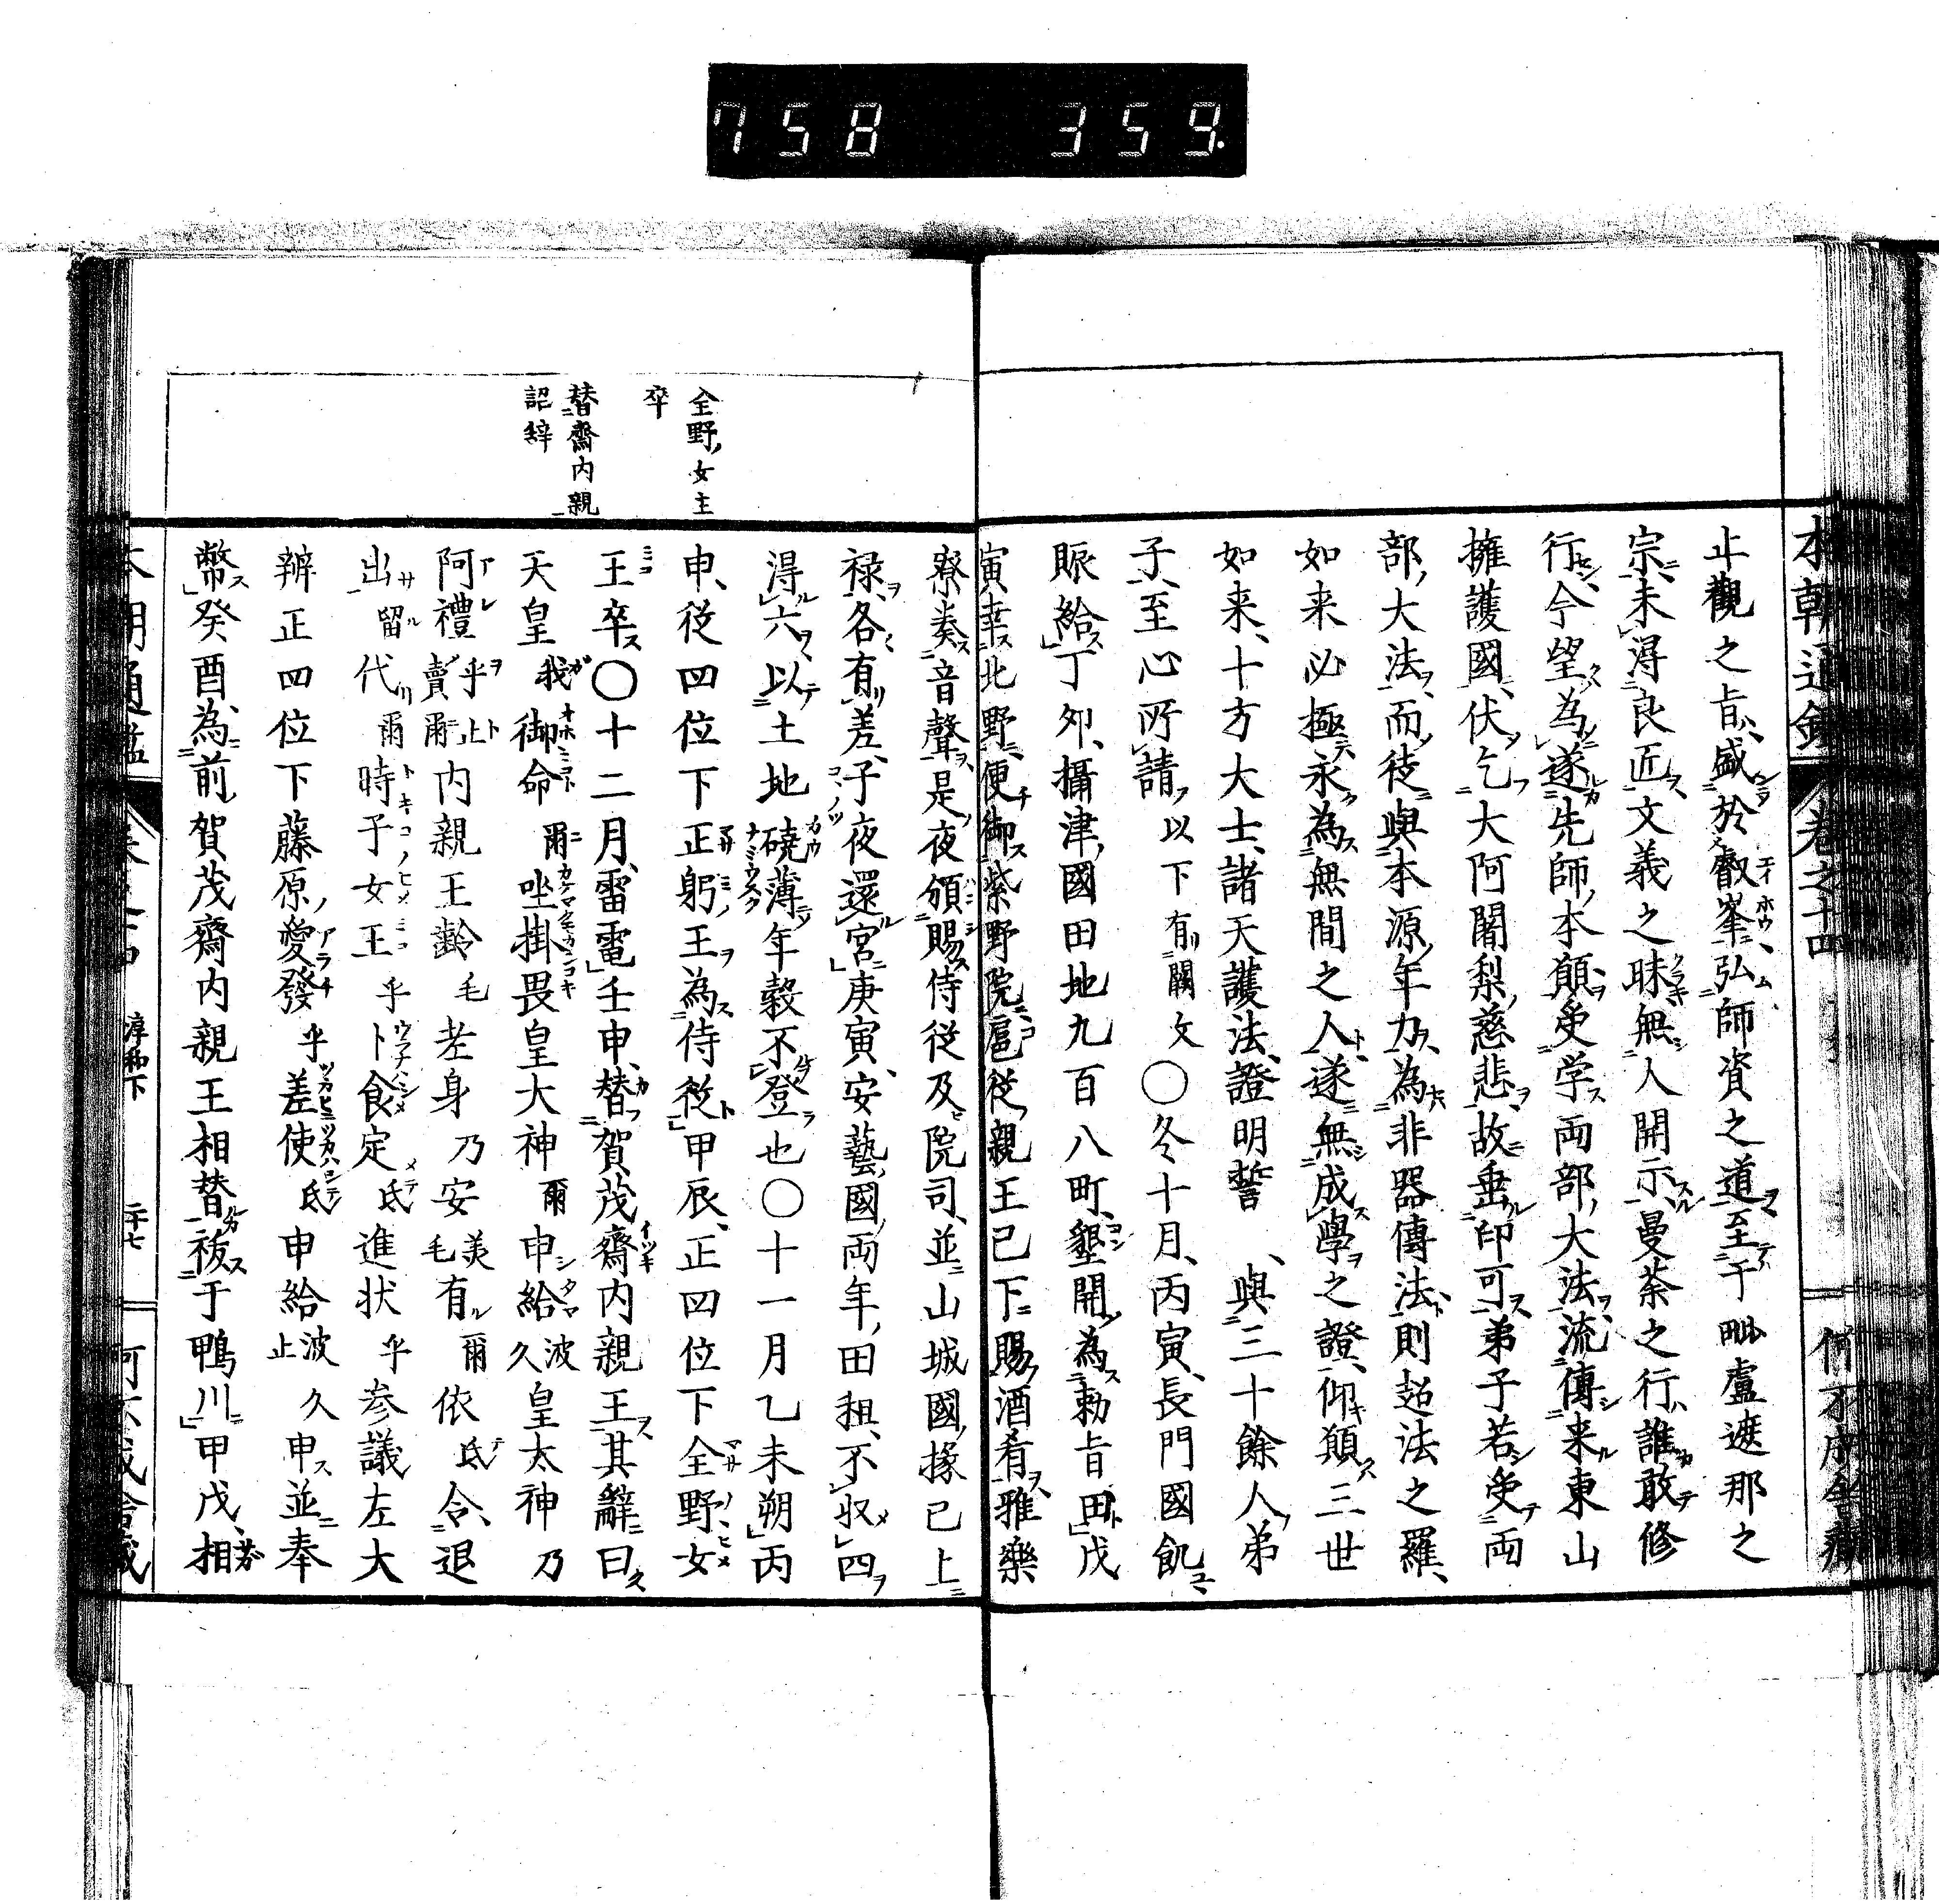 758 359.
本朝通鑑 卷之十四 淳和下
止觀之旨盛於叡峯弘師資之道至于毗盧遮那之
宗未淂良匠文義之昧無人開示曼荼之行誰敢修
行今望為遂先師本願受学両部大法流傳来東山
擁護國伏乞大阿闍梨慈悲故垂印可弟子若受両
部大法而徒與本源年力為非器傳法則超法之羅
如来必極永為無間之人遂無成學之證仰願三世
如来十方大士諸天護法證明誓 與三十餘人弟
子至心所請以下有闕文○冬十月丙寅長門國飢
賑給丁夘攝津國田地九百八町墾開為勅旨田戊
寅幸北野便御紫野院扈從親王已下賜酒肴雅樂
寮奏音聲是夜頒賜侍從及院司並山城國掾已上
禄各有差子夜還宮庚寅安藝國両年田租不収四
淂六以土地磽薄年穀不登也○十一月乙未朔丙
申從四位下正躬王為侍從甲辰正四位下全野女
王卒○十二月雷電壬申替賀茂齋内親王其辭曰
天皇我御命爾坐掛畏皇大神爾申給波久皇太神乃
阿禮乎止賣爾内親王齡毛老身乃安美毛有爾依氐合退
出留代爾時子女王乎卜食定氐進状乎参議左大
辨正四位下藤原愛發乎差使氐申給波止久申並奉
幣癸酉為前賀茂齋内親王相替祓于鴨川甲戊相
全野女主
卒
替齋内親
詔辞
二十七